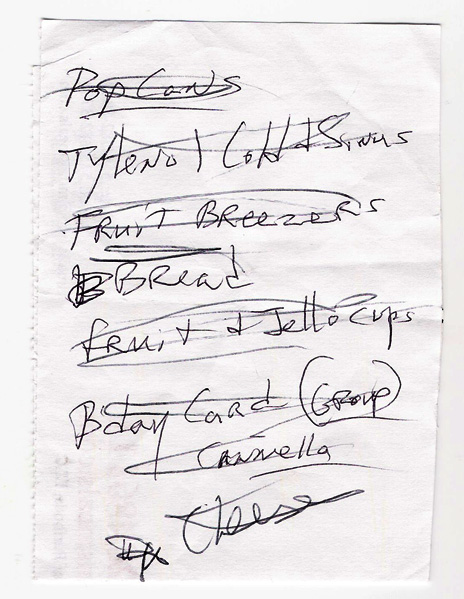 Pop Cans
Tylenol Cold + Sinus
Fruit Breezers
Bread
fruit + Jello Cups
B'day Card (Group)
Cheese